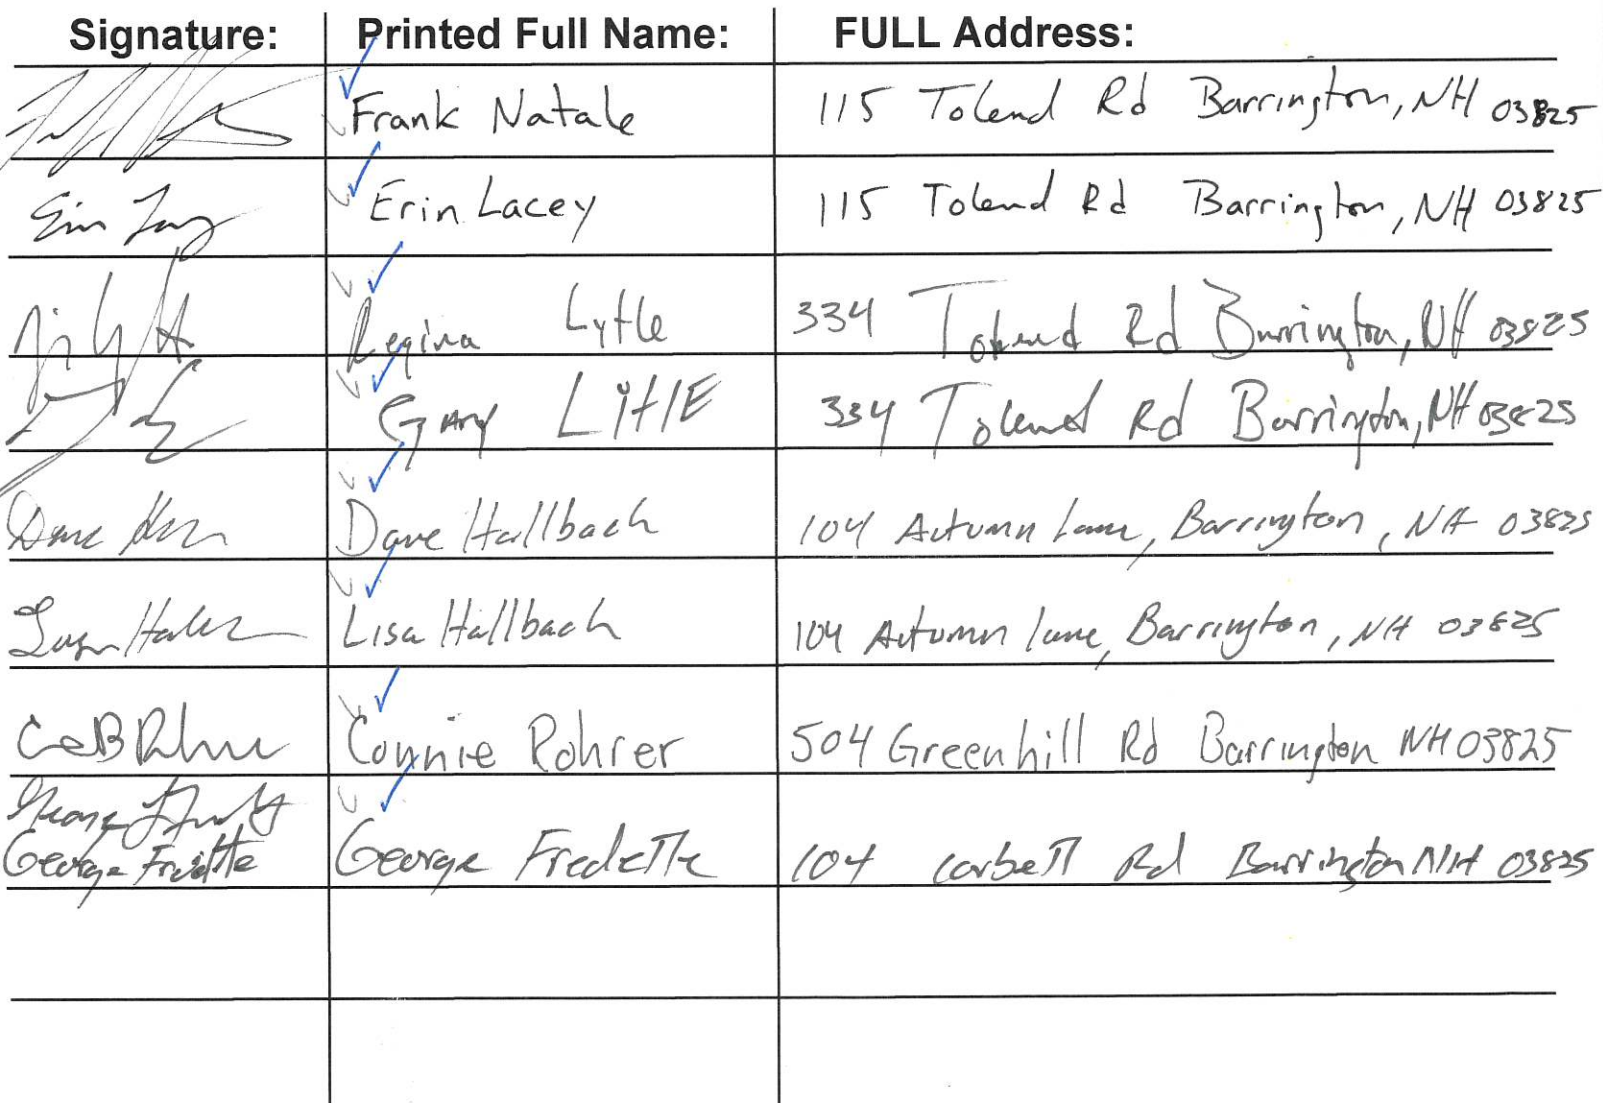 Signature: Printed Full Name: FULL Address:
Frank Natale 115 Tolend Rd Barrington, NH 03825
Erin Lacey 115 Tolend Rd Barrington, NH 03825
Regina Lytle 334 Tolend Rd Barrington, NH 03825
Gary Lytle 334 Tolend Rd Barrington, NH 03825
Dave Hallbach 104 Autumn Lane, Barrington, NH 03825
Lisa Hallbach 104 Autumn lane, Barrington, NH 03825
Connie Rohrer 504 Greenhill Rd Barrington NH 03825
George Fredette George Fredette 104 Corbett Rd Barrington NH 03825